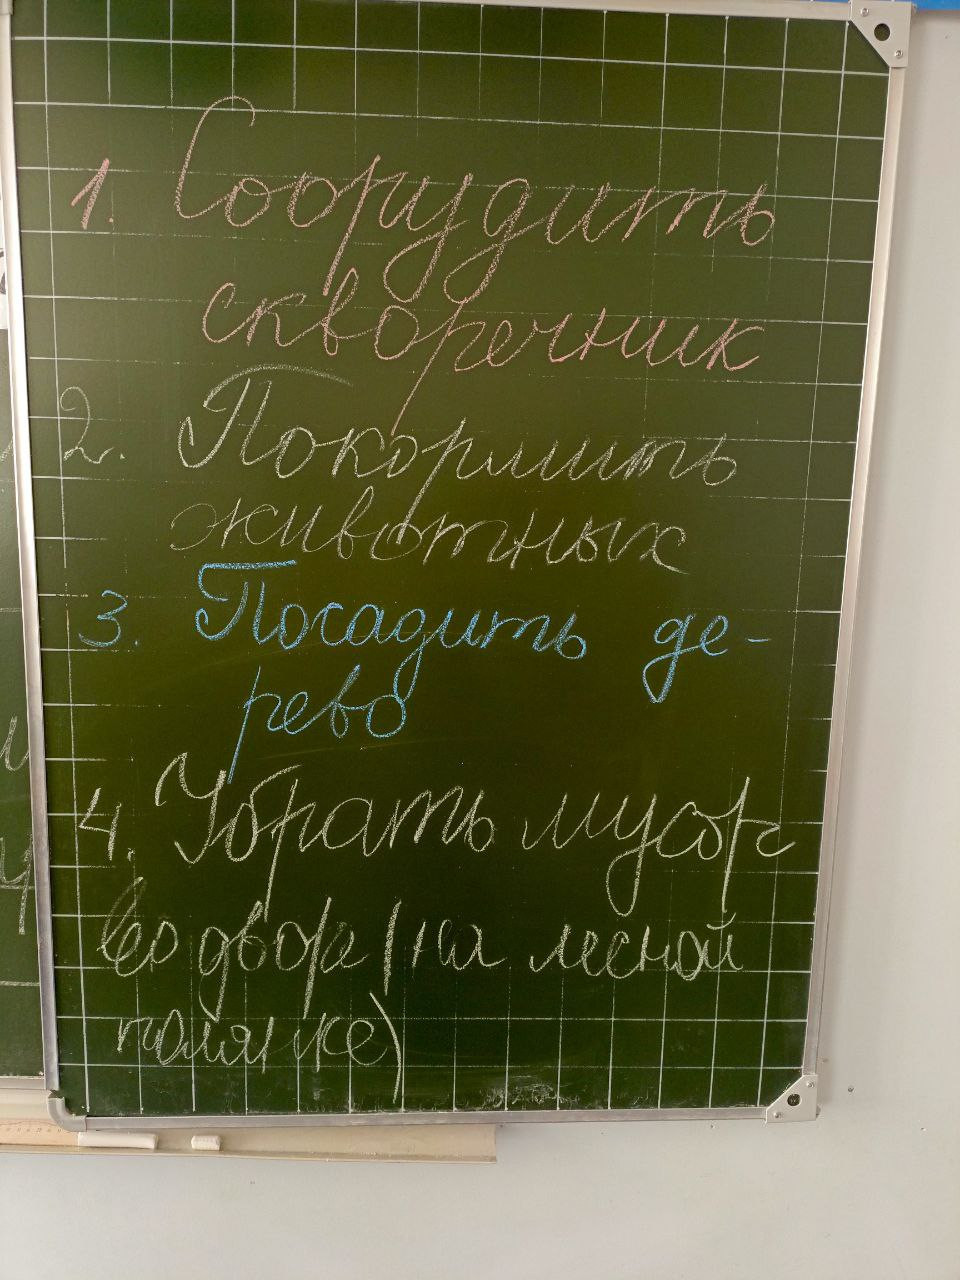 1. Соорудить
скворечник
2. Покормить
животных
3. Посадить де-
рево
4. Убрать мусор
во дворе (на лесной
полянке)